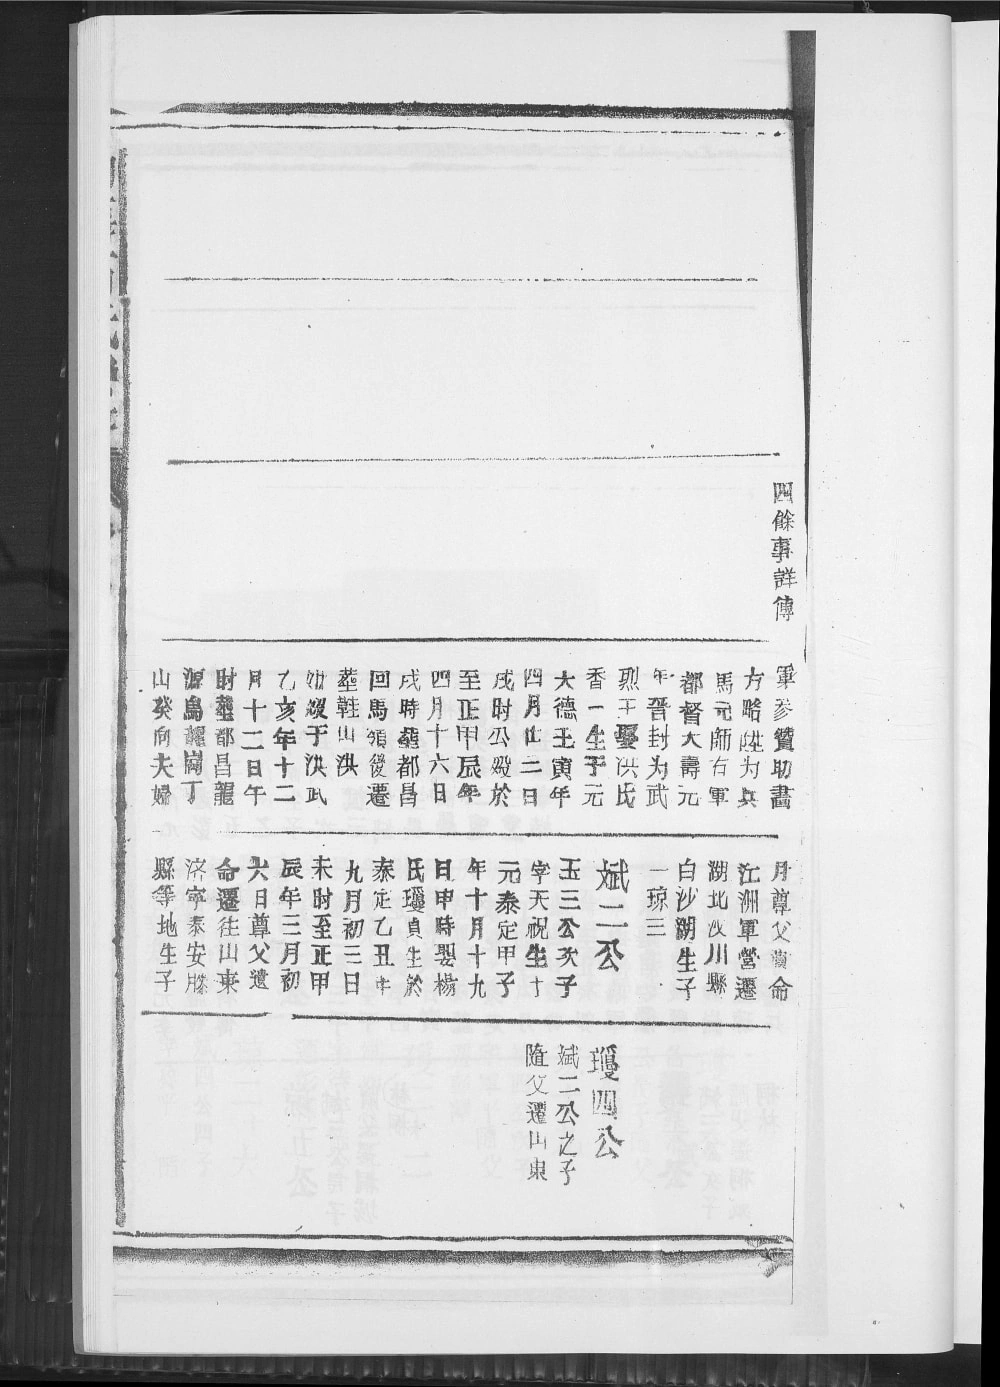 四餘事詳傳
軍參贊助畵
方略陞为兵
馬元帥右軍
都督大壽元
年晉封为武
烈王娶洪氏
香一生于元
大德壬寅年
四月廿二日
戌时公歿於
至正甲辰年
四月十六日
戌時塟都昌
回馬領後遷
塟鞋山洪
妣歿于洪武
乙亥年十二
月十二日午
时塟都昌龍
源鳥龍崗丁
山癸向夫婦
月尊父演命
江洲軍營遷
湖北汶川縣
白沙湖生子
一琼三
斌二公
玉三公次子
字天祝生于
元泰定甲子
年十月十九
日申時娶楊
氏瓊貞生於
泰定乙丑年
九月初三日
未时至正甲
辰年三月初
六日尊父遣
命遷往山東
济寧泰安滕
縣等地生子
瓊四公
斌二公之子
随父遷山東